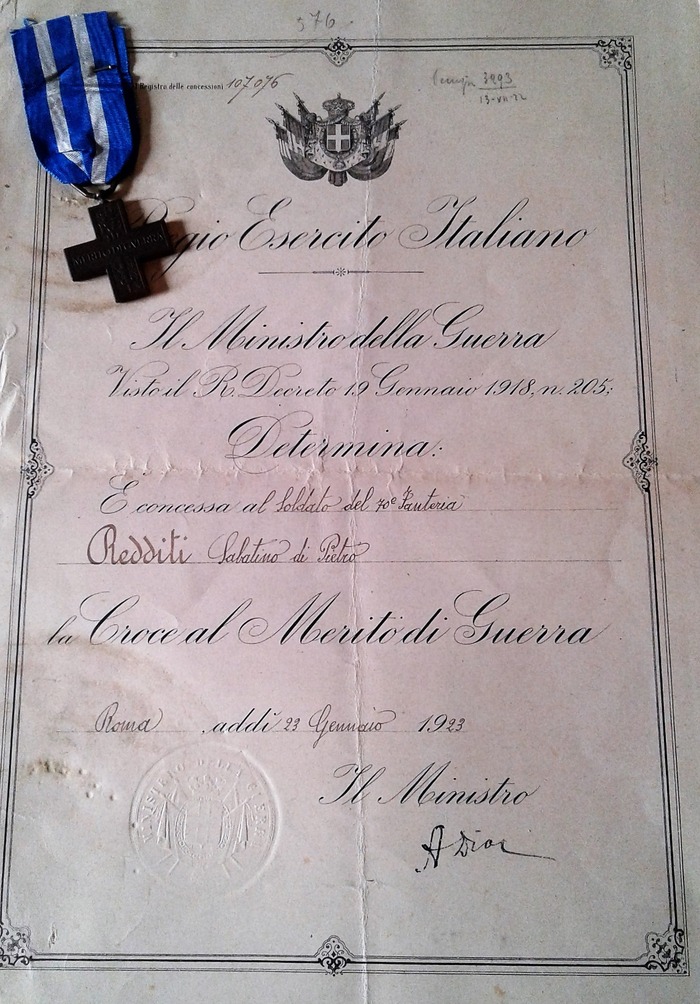 576
Registro delle concessioni 107076
3293
13-VII-22
Regio Esercito Italiano
MERITO DI GUERRA
Il Ministro della Guerra
Visto il R. Decreto 19 Gennaio 1918, n. 205;
Determina:
È concessa al Soldato del 70º Fanteria
Redditi Sabatino di Pietro
la Croce al Merito di Guerra
Roma, addì 23 Gennaio 1923
MINISTERO DELLA GUERRA
Il Ministro
A Diaz